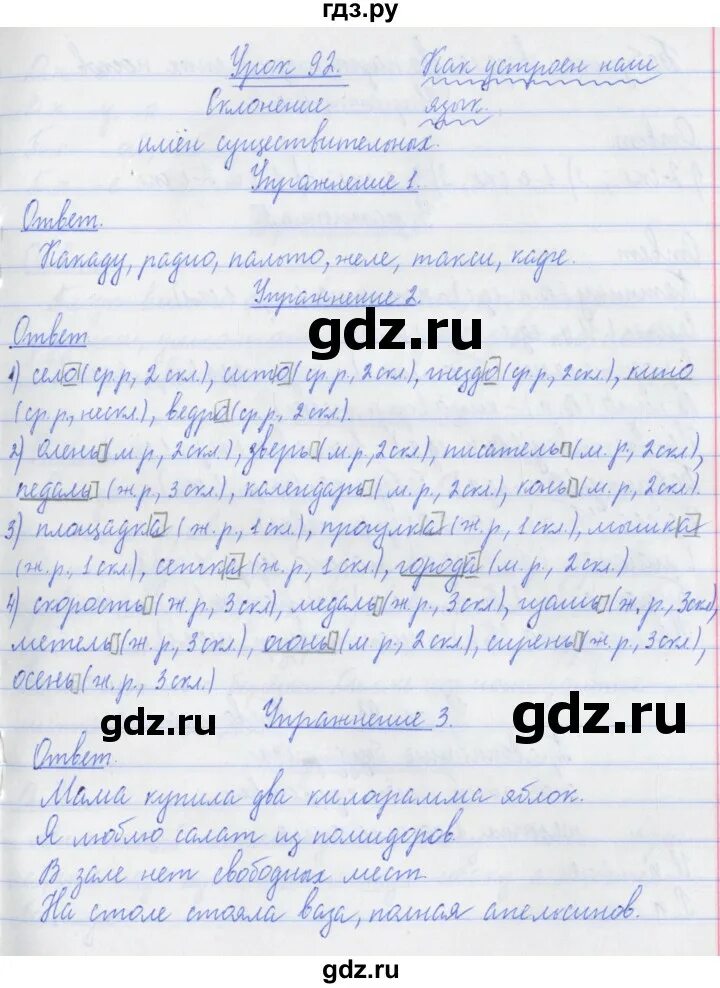 гдз.ру
Урок 92. Как устроен наш
Склонение язык.
имён существительных.
Упражнение 1.
Ответ.
Какаду, радио, пальто, желе, такси, кафе.
Упражнение 2.
gdz.ru
Ответ
1) село (ср.р, 2 скл.), сито (ср.р., 2скл.), гнездо (ср.р, 2скл.), кино
(ср.р., нескл.), ведро (ср.р., 2 скл.).
2) олень (м.р., 2скл.), зверь (м.р., 2скл.), писатель (м.р., 2скл.),
педаль (ж.р., 3скл.), календарь (м.р., 2скл.), конь (м.р., 2скл.).
3) площадка (ж.р., 1скл.), прогулка (ж.р., 1скл.), мышка
(ж.р., 1скл.), сетка (ж.р., 1скл.), города (м.р., 2скл.)
4) скорость (ж.р., 3скл.), медаль (ж.р., 3скл.), гуашь (ж.р., 3скл),
метель (ж.р., 3скл.), огонь (м.р., 2скл.), сирень (ж.р., 3скл.),
осень (ж.р., 3скл.)
gdz.ru Упражнение 3. gdz.ru
Ответ.
Мама купила два килограмма яблок.
Я люблю салат из помидоров.
В зале нет свободных мест.
На столе стояла ваза, полная апельсинов.
gdz.ru